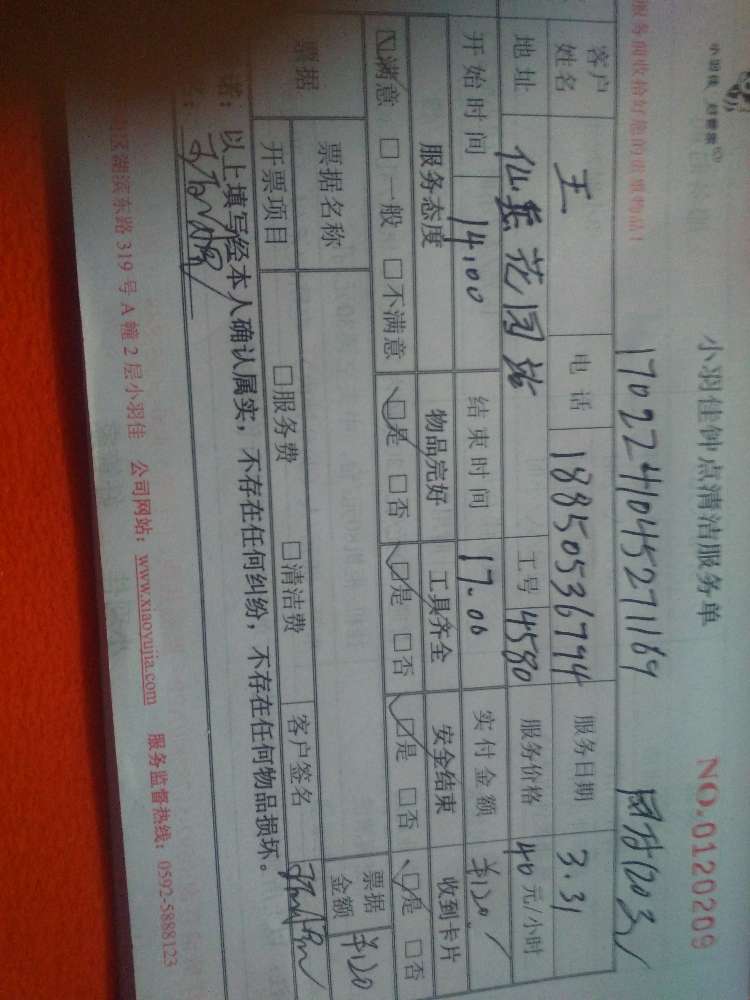 小羽佳 好管家
小羽佳钟点清洁服务单
NO.0120209
服务前收拾好您的贵重物品!
1702241045271169
客户姓名 王 电话 18850536794 服务日期 3.31
地址 仙岳花园 工号 4580 服务价格 40 元/小时
开始时间 14.00 结束时间 17.00 实付金额 ¥120
服务态度 物品完好 工具齐全 安全结束 收到卡片
☑满意 □一般 □不满意 ☑是 □否 ☑是 □否 ☑是 □否 ☑是 □否
票据 票据名称 票据金额 ¥120
开票项目 □服务费 □清洁费 客户签名
诺:以上填写经本人确认属实,不存在任何纠纷,不存在任何物品损坏。
区湖滨东路 319 号 A 幢 2 层小羽佳 公司网站:www.xiaoyujia.com 服务监督热线:0592-5888123